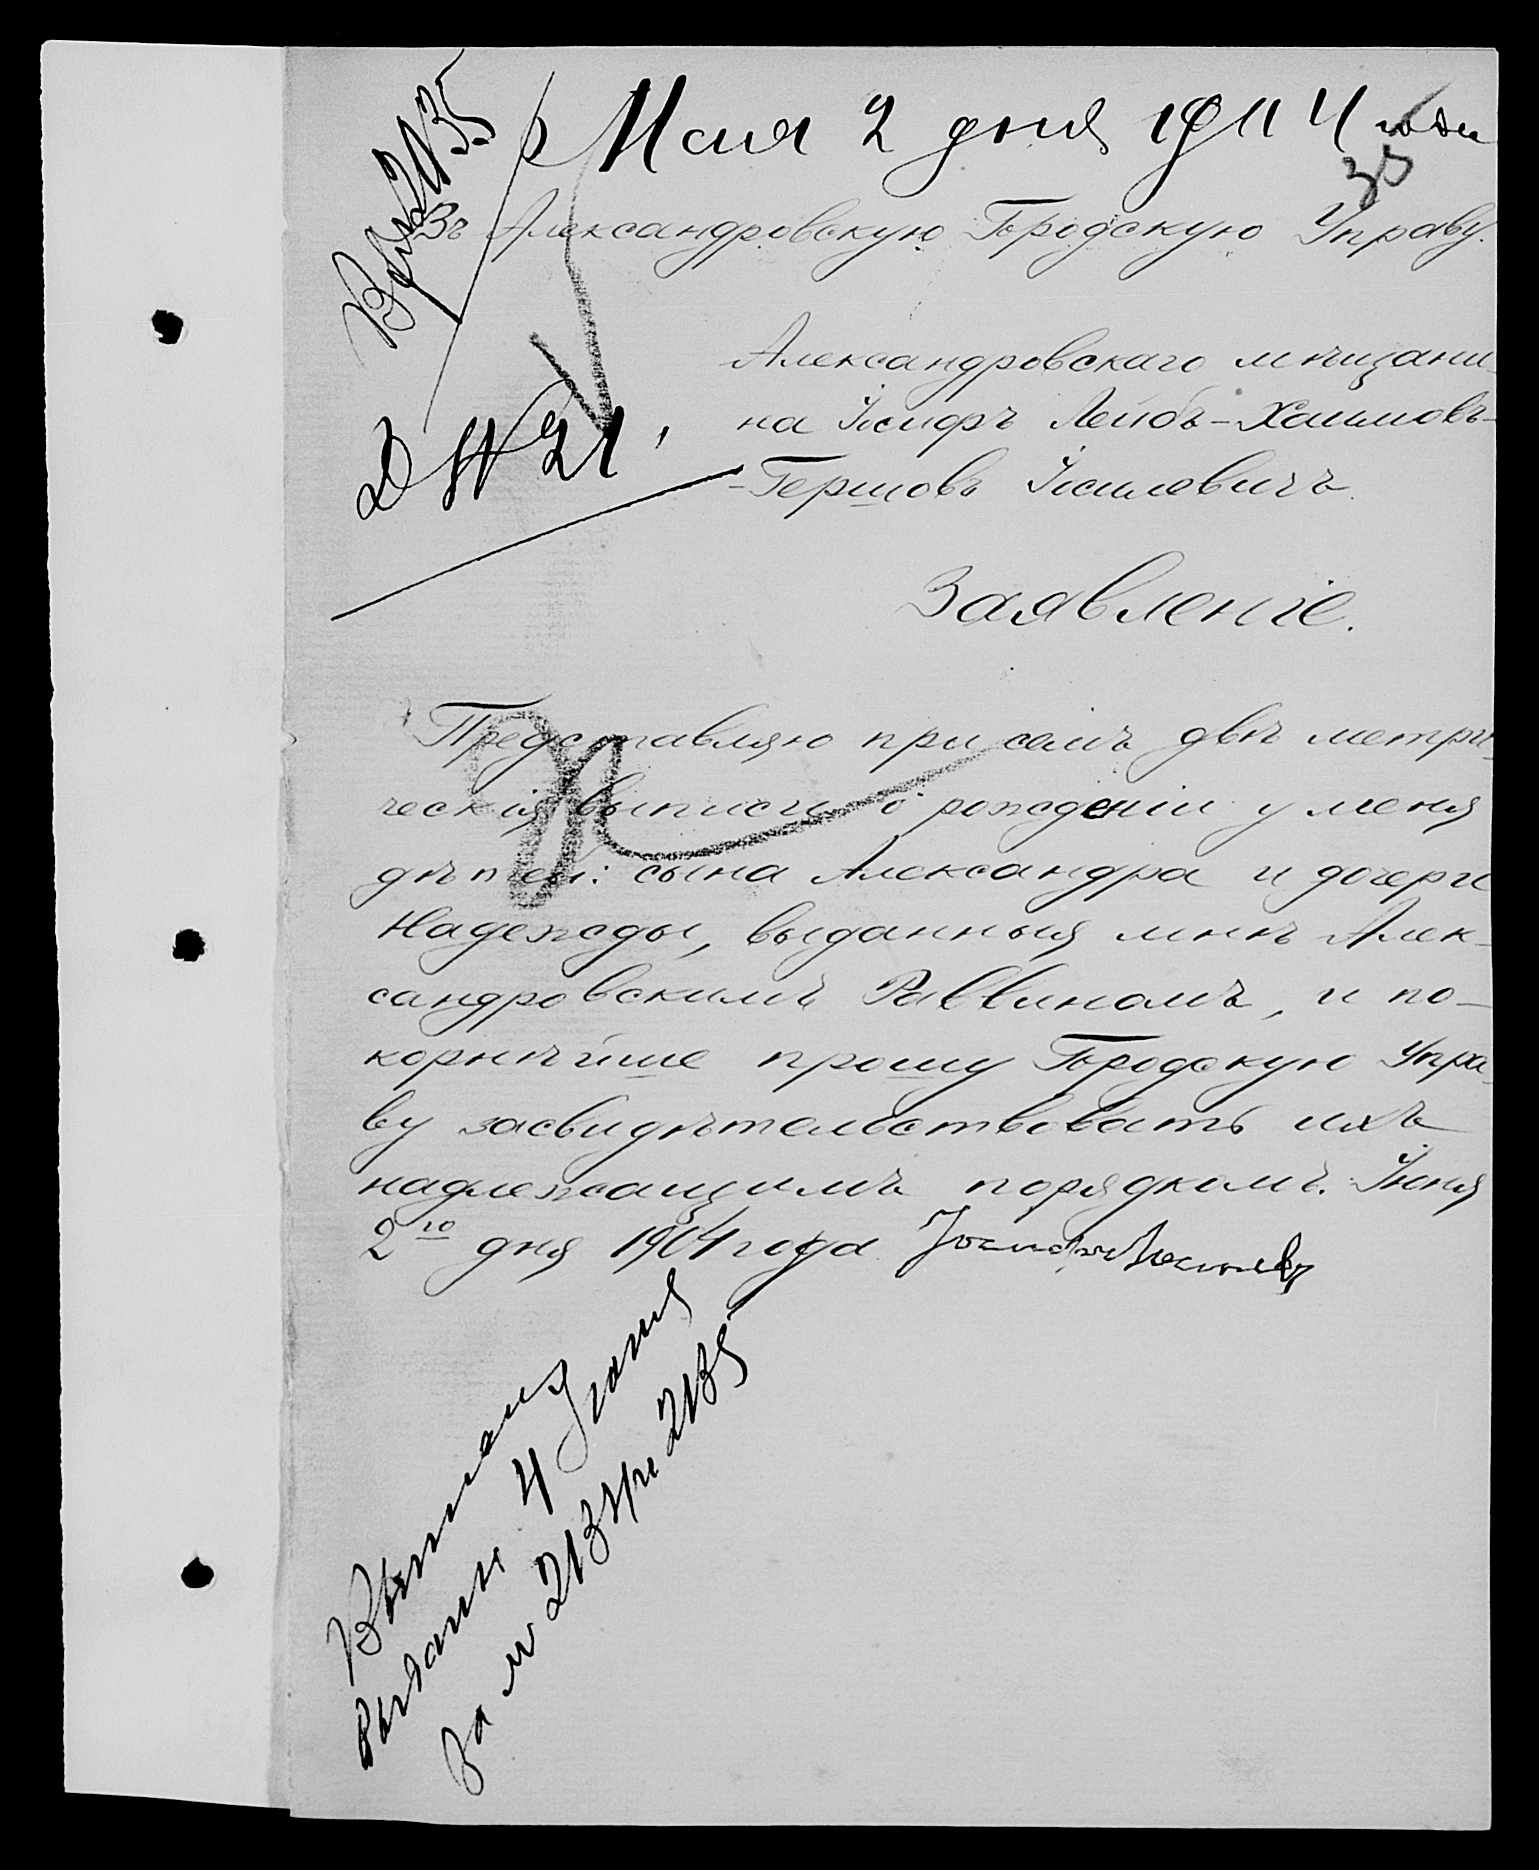 Мая 2 дня 1904 года
35
Вх. № 2135
Въ Александровскую Городскую Управу.
Д № 21,
Александровскаго мѣщани-
на Іосифъ Лейбъ-Хаимовъ-
-Гершовъ Іосилевичъ.
Заявленіе.
Представляю при семъ двѣ метри-
ческія выписи о рожденіи у меня
дѣтей: сына Александра и дочери
Надежды, выданныя мнѣ Алек-
сандровскимъ Раввиномъ, и по-
корнѣйше прошу Городскую Упра-
ву засвидѣтельствовать ихъ
надлежащимъ порядкомъ. Іюня
2го дня 1904 года
выданы 4 Іюня
за № 2134 и 2135